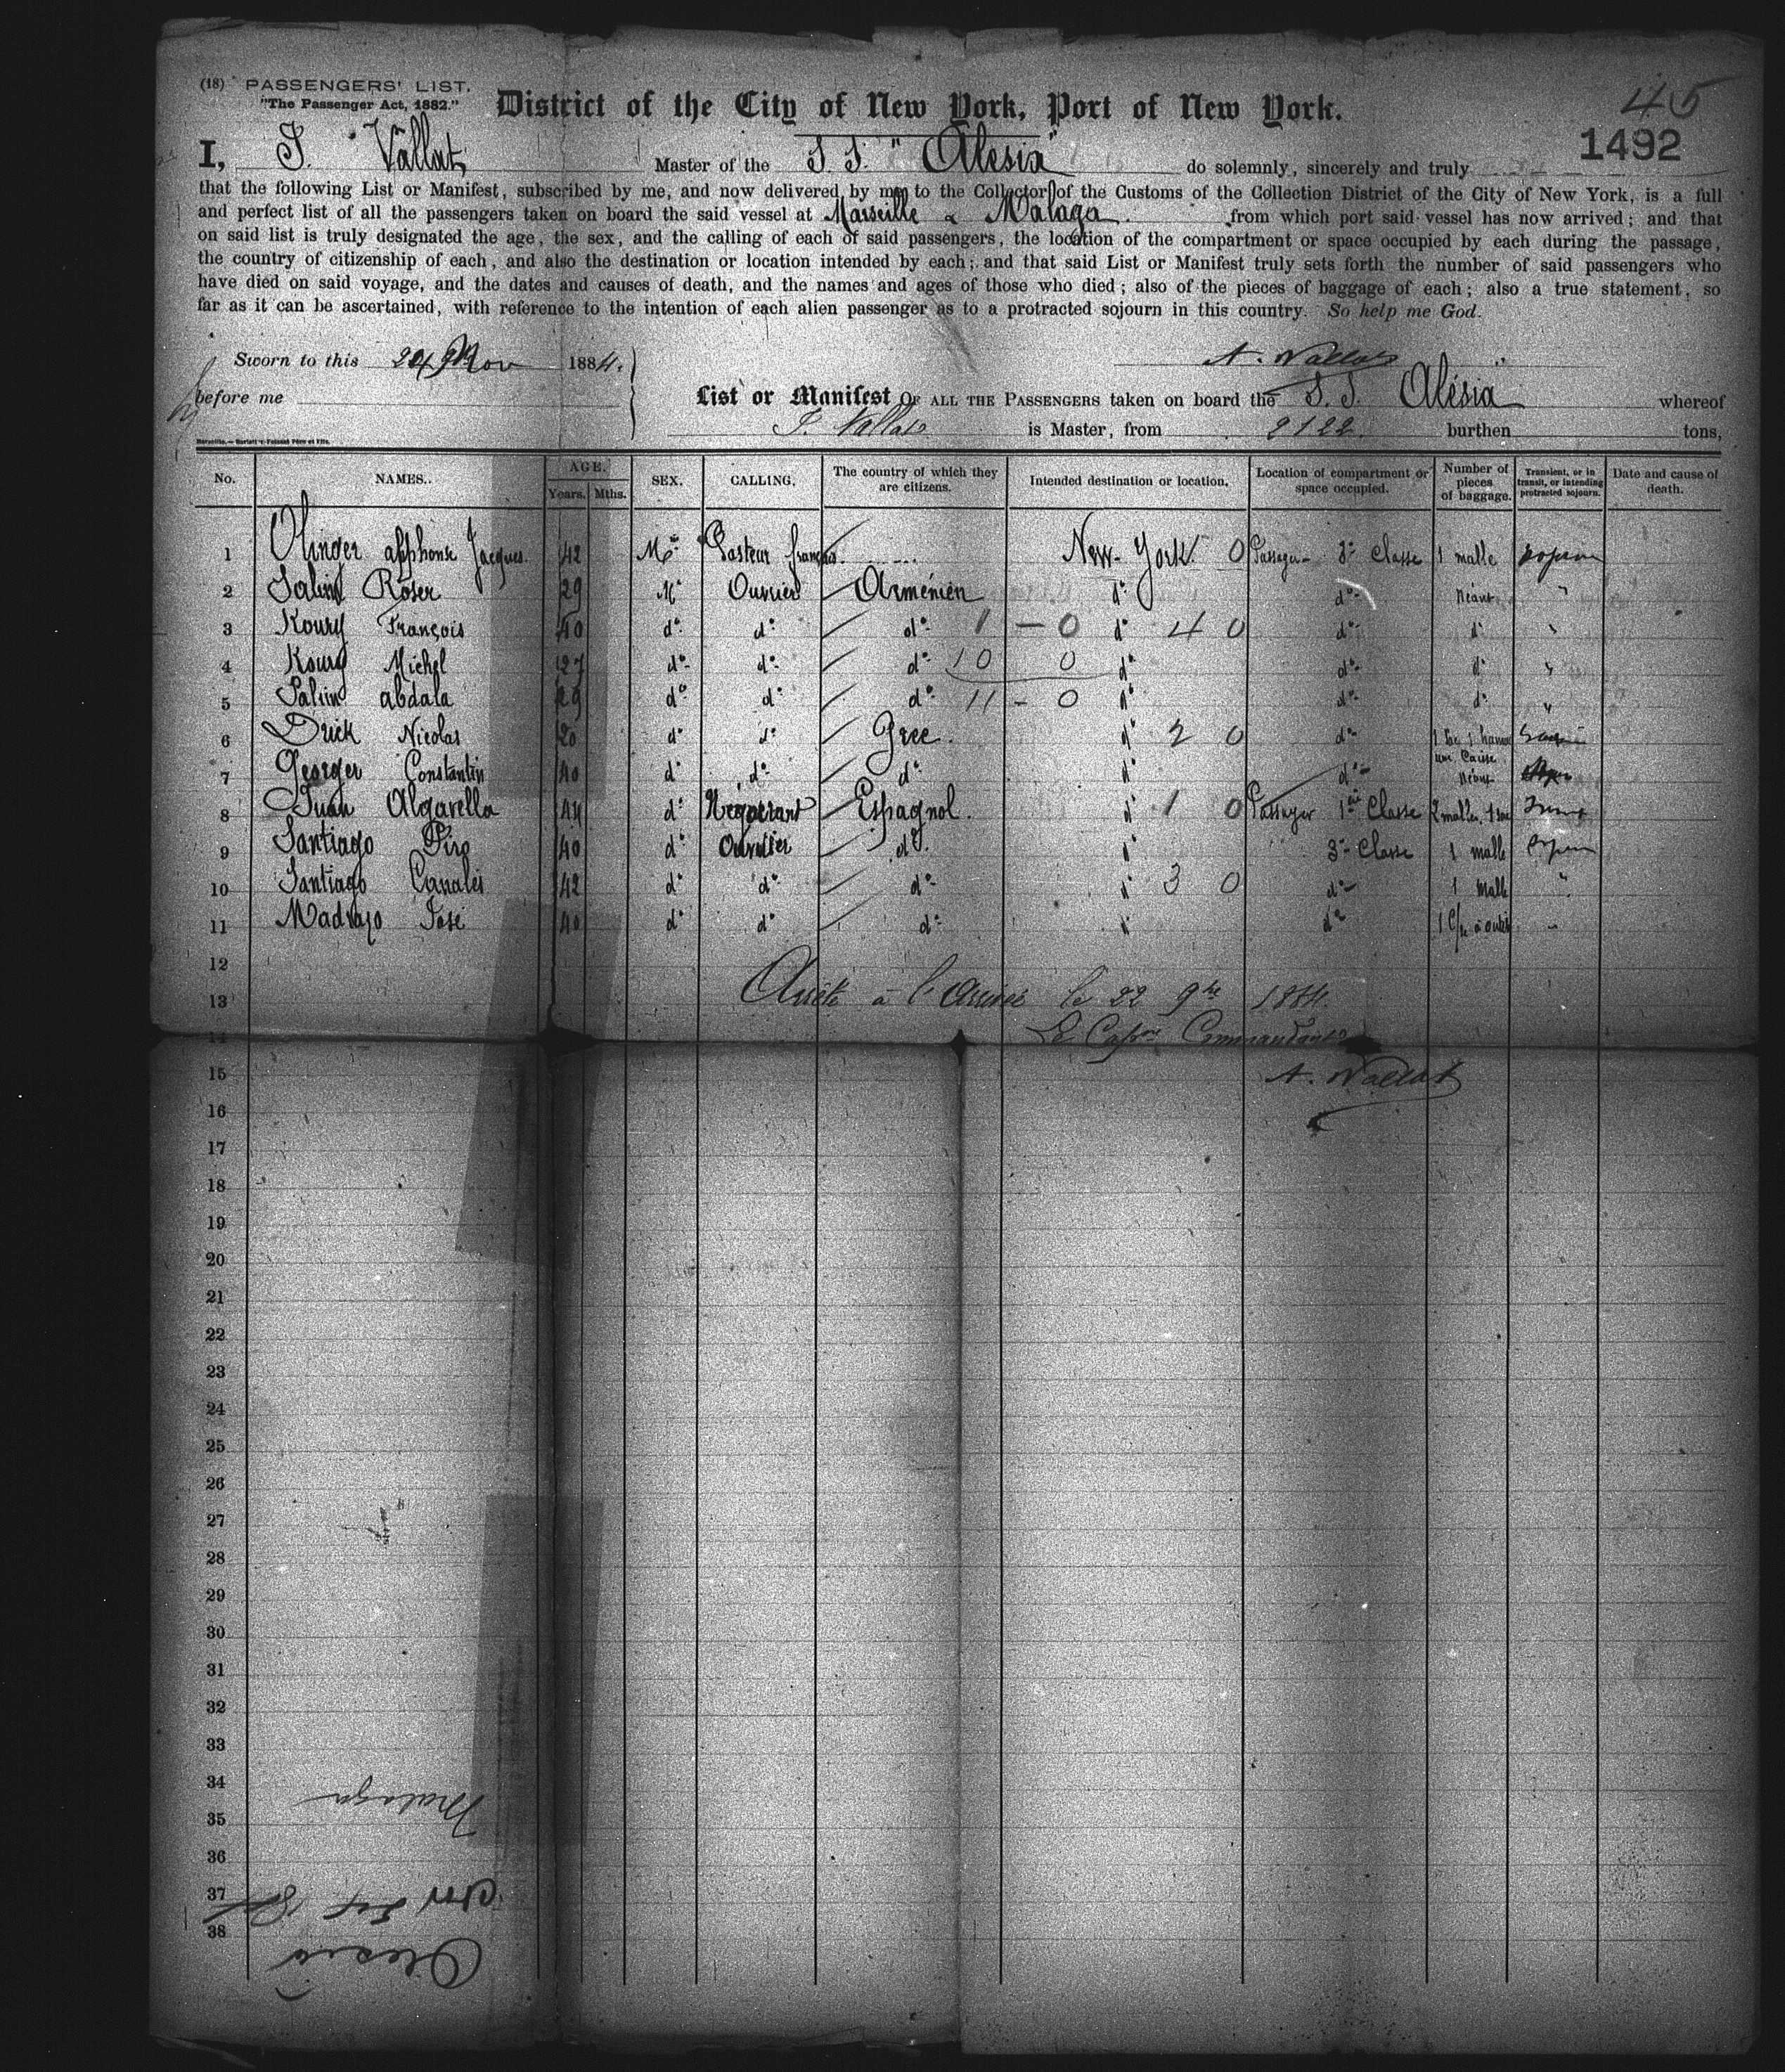 (18) PASSENGERS' LIST.
"The Passenger Act, 1882."
District of the City of New York, Port of New York.
45
1492
I, J. Vallat Master of the S. S. "Alesia" do solemnly, sincerely and truly
that the following List or Manifest, subscribed by me, and now delivered by me to the Collector of the Customs of the Collection District of the City of New York, is a full
and perfect list of all the passengers taken on board the said vessel at Marseille & Malaga from which port said vessel has now arrived; and that
on said list is truly designated the age, the sex, and the calling of each of said passengers, the location of the compartment or space occupied by each during the passage,
the country of citizenship of each, and also the destination or location intended by each; and that said List or Manifest truly sets forth the number of said passengers who
have died on said voyage, and the dates and causes of death, and the names and ages of those who died; also of the pieces of baggage of each; also a true statement, so
far as it can be ascertained, with reference to the intention of each alien passenger as to a protracted sojourn in this country. So help me God.
Sworn to this 24 Nov 1884.
A. Vallat
before me
List or Manifest OF ALL THE PASSENGERS taken on board the S. S. Alésia whereof
J. Vallat is Master, from 2122 burthen tons,
No. NAMES. AGE. Years. Mths. SEX. CALLING. The country of which they are citizens. Intended destination or location. Location of compartment or space occupied. Number of pieces of baggage. Transient, or in transit, or intending protracted sojourn. Date and cause of death.
1 Olinger alphonse Jacques 42 Mc Pasteur français New-York 0 Passager 3e Classe 1 malle
2 Salim Roser 29 Mc Ouvrier Arménien do do Néant "
3 Koury François 40 do do do 1 - 0 do 4 0 do do "
4 Koury Michel 27 do do do 10 0 do do do "
5 Salim abdala 29 do do do 11 - 0 do do do "
6 Drick Nicolas 20 do do Grec. do 2 0 do
7 Georger Constantin 40 do do do do do Néant
8 Juan Algarella 44 do Négociant Espagnol. do 1 0 Passager 1ère Classe 2 malles, 1 sac
9 Santiago Piro 40 do Ouvrier do do 3e Classe 1 malle
10 Santiago Canales 42 do do do do 3 0 do 1 malle "
11 Madrazo José 40 do do do do do
12
13 Arrêté à l'arrivée le 22 9bre 1884
14 Le Capne Commandant
15 A. Vallat
16
17
18
19
20
21
22
23
24
25
26
27
28
29
30
31
32
33
34
35 Malaga
36
37
38
Alesia